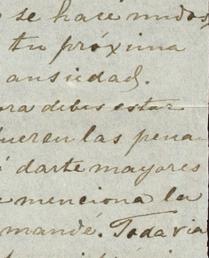 se hace nudos,
tu próxima
ansiedad.
ora debes estar
queren las pena
darte mayores
menciona la
mandé. Todavia